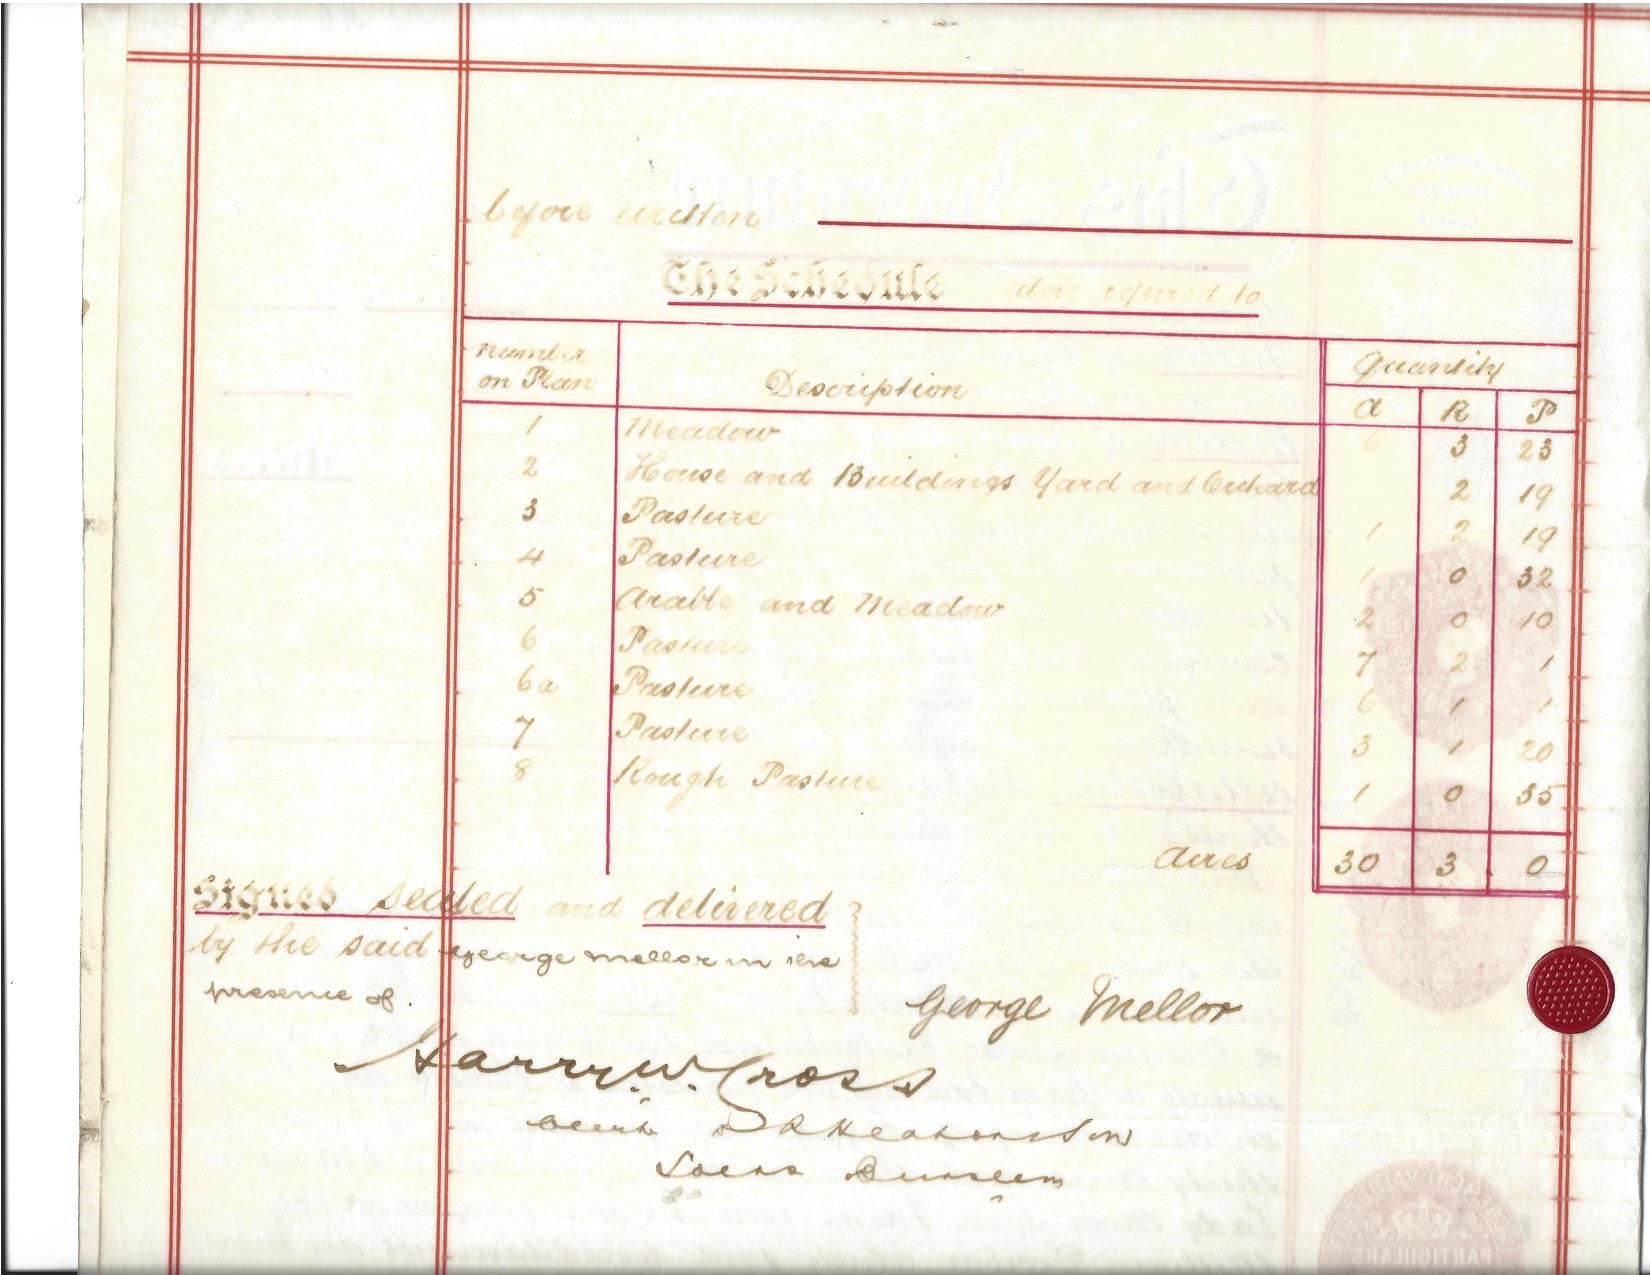 before written
The Schedule above referred to
Number on Plan Description Quantity
A R P
1 Meadow 6 3 23
2 House and Buildings Yard and Orchard 2 19
3 Pasture 1 2 19
4 Pasture 1 0 32
5 Arable and Meadow 2 0 10
6 Pasture 7 2 1
6a Pasture 6 1 1
7 Pasture 3 1 20
8 Rough Pasture 1 0 35
Acres 30 3 0
Signed sealed and delivered
by the said George Mellor in the
presence of.
George Mellor
Harry. W. Cross
Clerk
Burslem
PARTICULARS